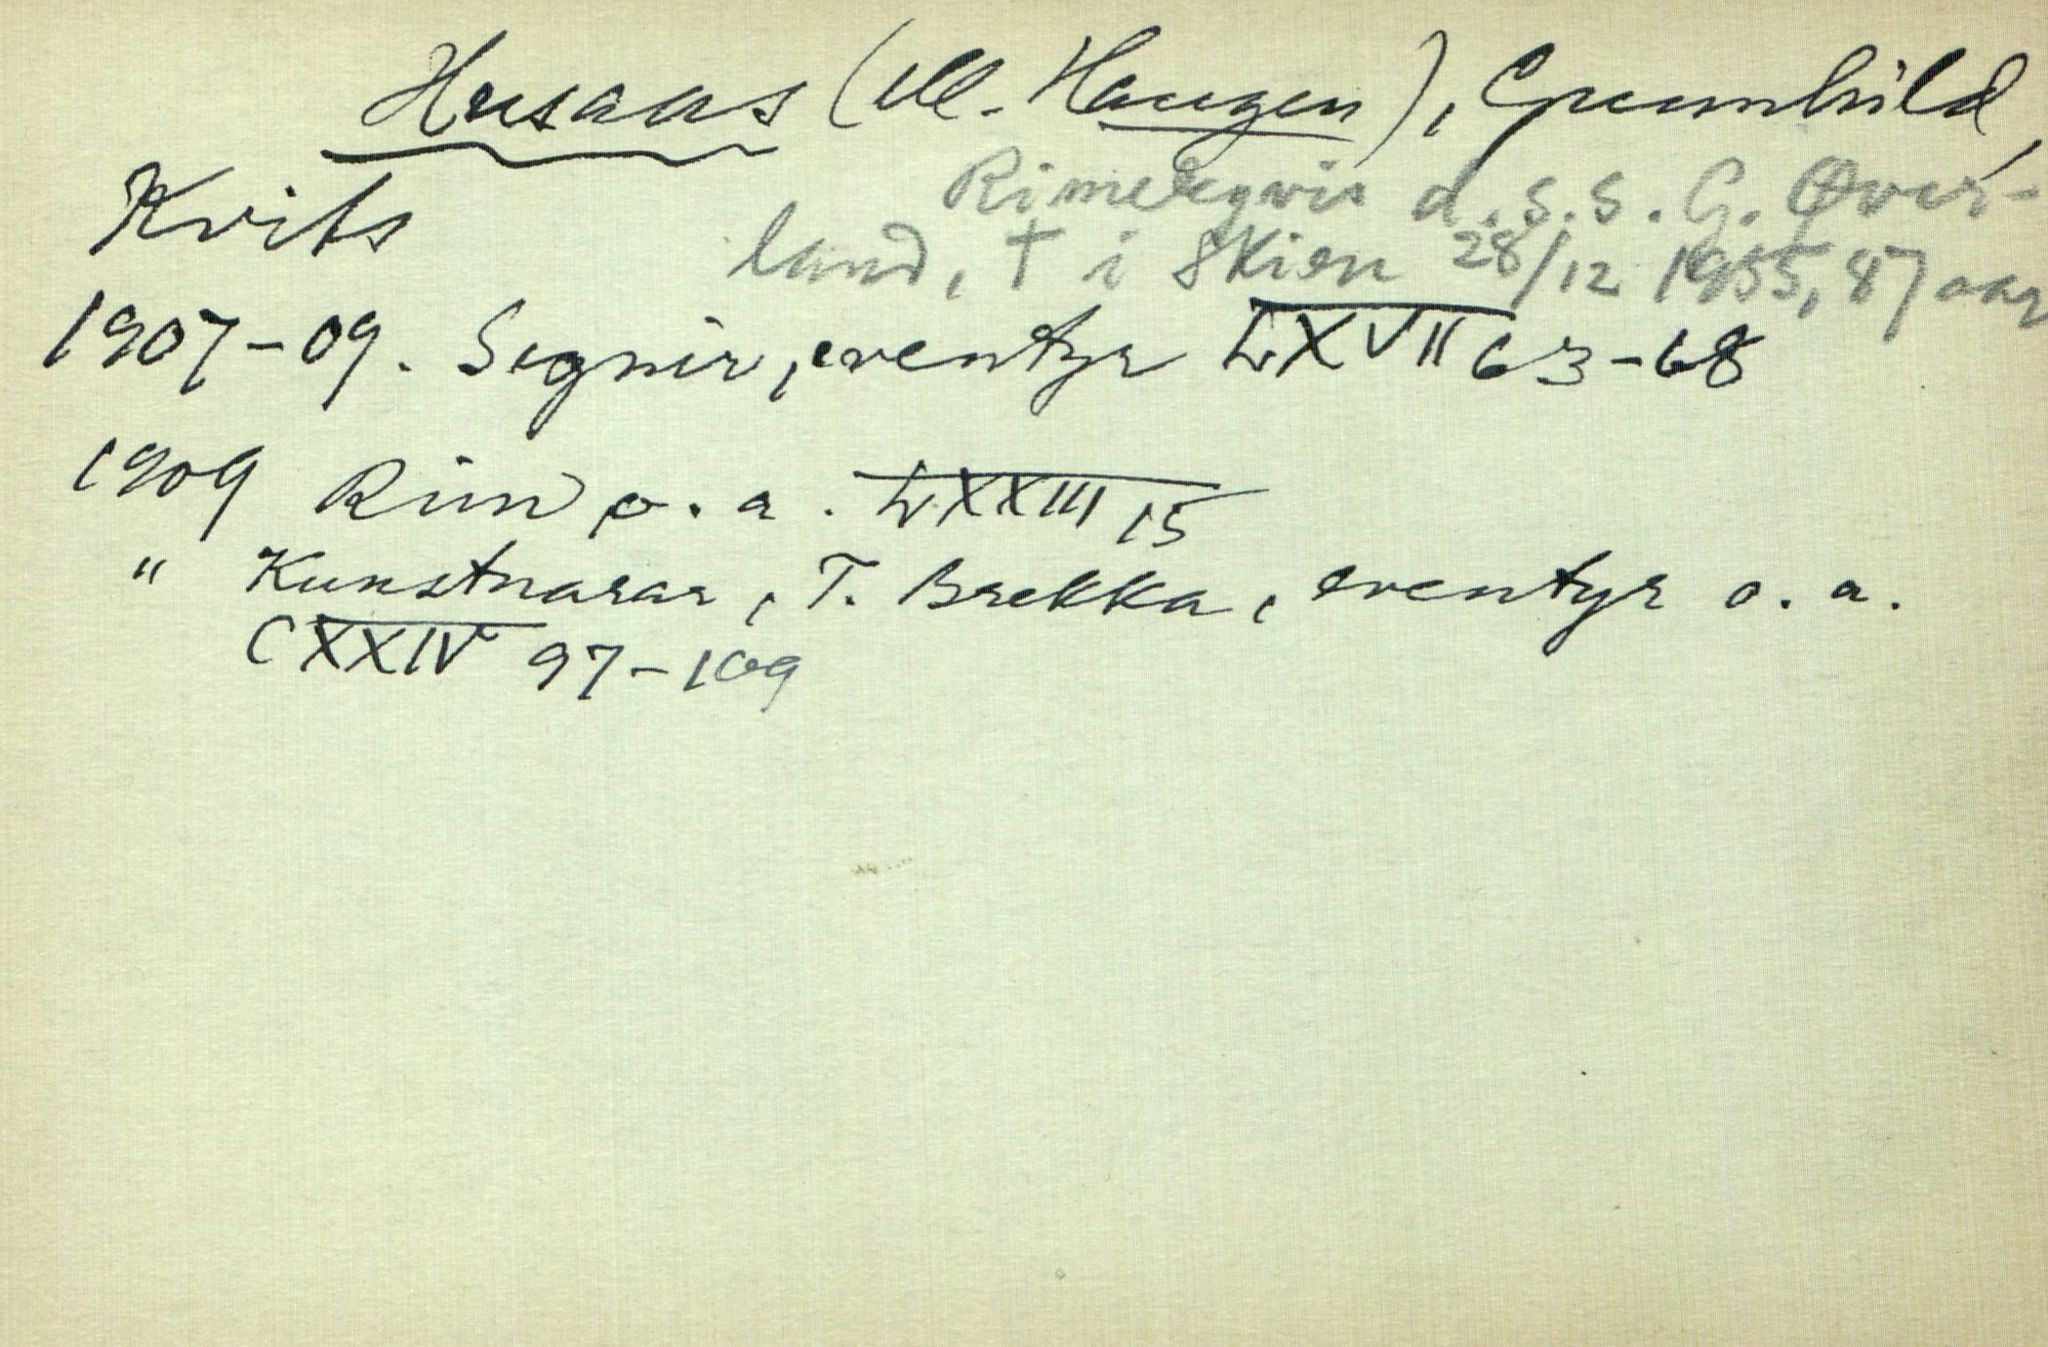 Husaas (ell. Haugen), Gunnhild,
Kvits
Rimelegvis d.s.s. G. Øver-
land, † i Skien 28/12 1955, 87 aar
1907-09. Segnir, eventyr LXVII 63-68
1909 Rim o. a. LXXIII 15
" Kunstnarar, T. Brekka, eventyr o. a.
CXXIV 97-109